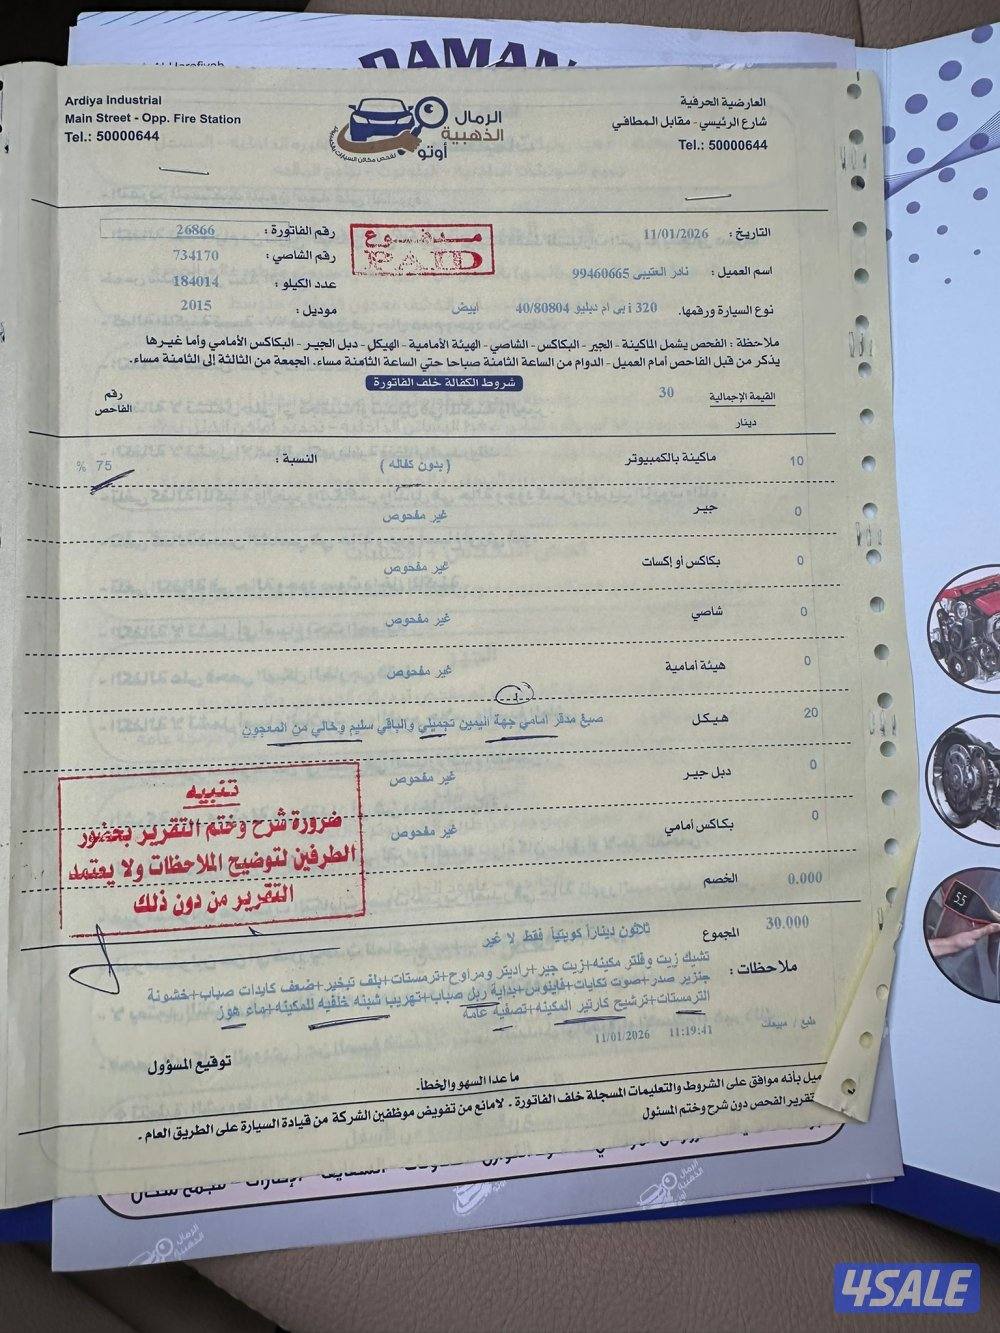 DAMAN
Ardiya Industrial
Main Street - Opp. Fire Station
Tel.: 50000644
الرمال
الذهبية
أوتو
لفحص مكائن السيارات بالكمبيوتر
العارضية الحرفية
شارع الرئيسي - مقابل المطافي
Tel.: 50000644
التاريخ : 11/01/2026
مدفوع
PAID
رقم الفاتورة : 26866
اسم العميل : نادر العتيبي 99460665
رقم الشاصي : 734170
عدد الكيلو : 184014
نوع السيارة ورقمها. 320 i بي ام دبليو 40/80804 ابيض
موديل : 2015
ملاحظة : الفحص يشمل الماكينة - الجير - البكاكس - الشاصي - الهيئة الأمامية - الهيكل - دبل الجير - البكاكس الأمامي وأما غيرها
يذكر من قبل الفاحص أمام العميل - الدوام من الساعة الثامنة صباحا حتي الساعة الثامنة مساء. الجمعة من الثالثة إلى الثامنة مساء.
شروط الكفالة خلف الفاتورة
القيمة الإجمالية 30
دينار
رقم
الفاحص
10 ماكينة بالكمبيوتر ( بدون كفاله ) النسبة : 75 %
0 جير غير مفحوص
0 بكاكس أو إكسات غير مفحوص
0 شاصي غير مفحوص
0 هيئة أمامية غير مفحوص
20 هيكل صبغ مدقر امامي جهة اليمين تجميلي والباقي سليم وخالي من المعجون
0 دبل جير غير مفحوص
0 بكاكس أمامي غير مفحوص
تنبيه
ضرورة شرح وختم التقرير بحضور
الطرفين لتوضيح الملاحظات ولا يعتمد
التقرير من دون ذلك
0.000 الخصم
30.000 المجموع ثلاثون ديناراً كويتياً فقط لا غير
ملاحظات : تشيك زيت وفلتر مكينه+زيت جير+راديتر ومراوح+ترمستات+بلف تبخير+ضعف كايدات صباب+خشونة
جنزير صدر+صوت تكايات+فاينوس+بداية ربل صباب+تهريب شبنه خلفيه للمكينه+ماء هوز
الترمستات+ترشيح كارتير المكينه+تصفيه عامة
طبع / مبيعات 11:19:41 11/01/2026
توقيع المسؤول
ما عدا السهو والخطأ.
ميل بأنه موافق على الشروط والتعليمات المسجلة خلف الفاتورة . لامانع من تفويض موظفين الشركة من قيادة السيارة على الطريق العام .
تقرير الفحص دون شرح وختم المسئول
الرمال
الذهبية
أوتو
الرمال
الذهبية
5.5
4SALE